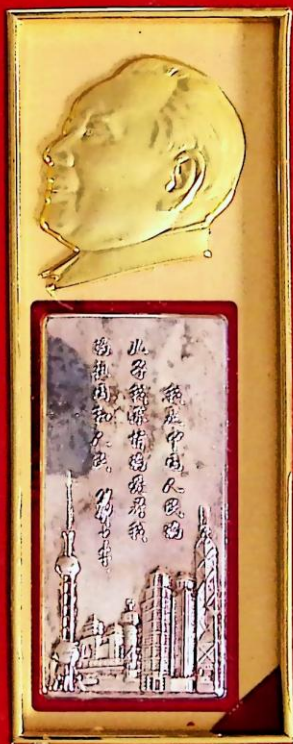 我是中国人民的
儿子我深情地爱着我
的祖国和人民 邓小平